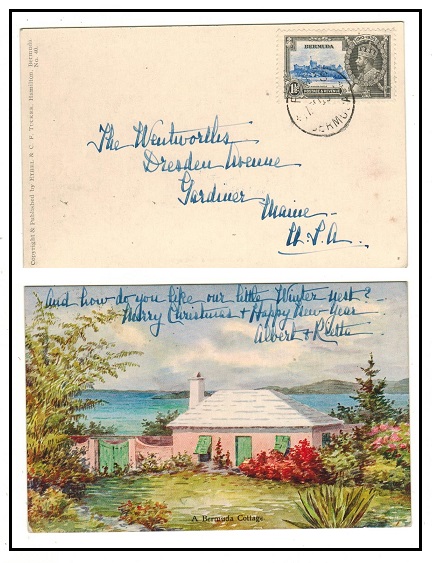 BERMUDA
POSTAGE & REVENUE
BERMU
Copyright & Published by Ethel & C. F. Tucker, Hamilton, Bermuda
No. 40.
The Wentworths
Dresden Avenue
Gardiner
Maine
U.S.A.
And how do you like our little Winter nest?
Merry Christmas + Happy New Year
Albert + Retta
A Bermuda Cottage